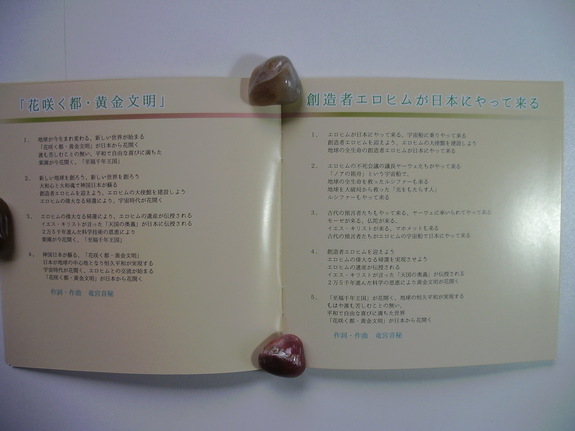 「花咲く都・黄金文明」
1. 地球が今生まれ変わる、新しい世界が始まる
「花咲く都・黄金文明」が日本から花開く
誰も苦しむことの無い、平和で自由な喜びに満ちた
楽園が今花開く、「至福千年王国」
2. 新しい地球を創ろう、新しい世界を創ろう
大和心と大和魂で神国日本が蘇る
創造者エロヒムを迎えよう、エロヒムの大使館を建設しよう
エロヒムの偉大なる帰還により、宇宙時代が花開く
3. エロヒムの偉大なる帰還により、エロヒムの遺産が伝授される
イエス・キリストが言った「天国の奥義」が日本に伝授される
2万5千年進んだ科学技術の恩恵により
楽園が今花開く、「至福千年王国」
4. 神国日本が蘇る、「花咲く都・黄金文明」
日本が地球の中心地となり恒久平和が実現する
宇宙時代が花開く、エロヒムとの交流が始まる
「花咲く都・黄金文明」が日本から花開く
作詞・作曲 竜宮音秘
創造者エロヒムが日本にやって来る
1. エロヒムが日本にやって来る、宇宙船に乗りやって来る
創造者エロヒムを迎えよう、エロヒムの大使館を建設しよう
地球の全生命の創造者エロヒムが日本にやって来る
2. エロヒムの不死会議の議長ヤーウェたちがやって来る
「ノアの箱舟」という宇宙船で、
地球の全生命を救ったルシファーも来る
地球を大破局から救った「光をもたらす人」
ルシファーもやって来る
3. 古代の預言者たちもやって来る、ヤーウェに率いられてやって来る
モーゼが来る、仏陀が来る、
イエス・キリストが来る、マホメットも来る
古代の預言者たちがエロヒムの宇宙船で日本にやって来る
4. 創造者エロヒムを迎えよう
エロヒムの偉大なる帰還を実現させよう
エロヒムの遺産が伝授される
イエス・キリストが言った「天国の奥義」が伝授される
2万5千年進んだ科学の恩恵により黄金文明が花開く
5. 「至福千年王国」が花開く、地球の恒久平和が実現する
もはや誰も苦しむことの無い、
平和で自由な喜びに満ちた世界
「花咲く都・黄金文明」が日本から花開く
作詞・作曲 竜宮音秘